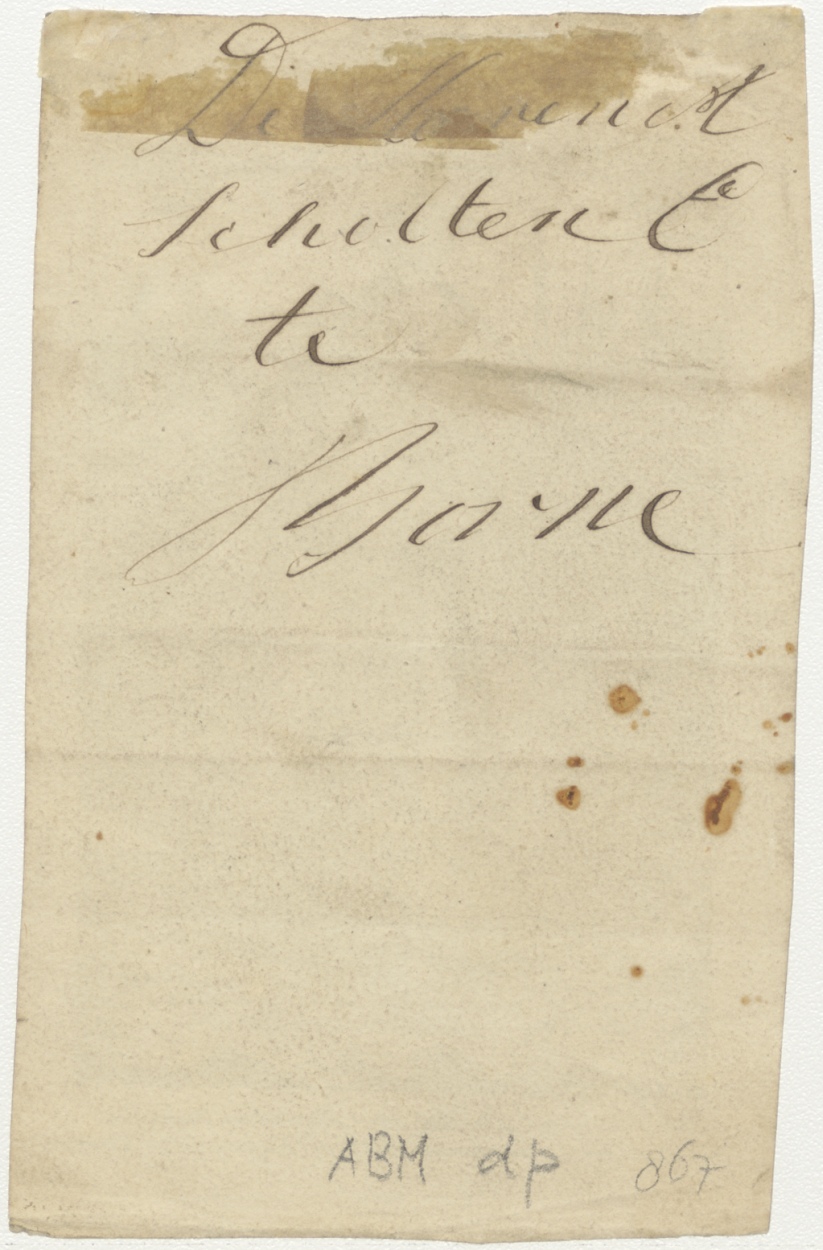 De
Scholten Co
te
Borne
ABM dp 867